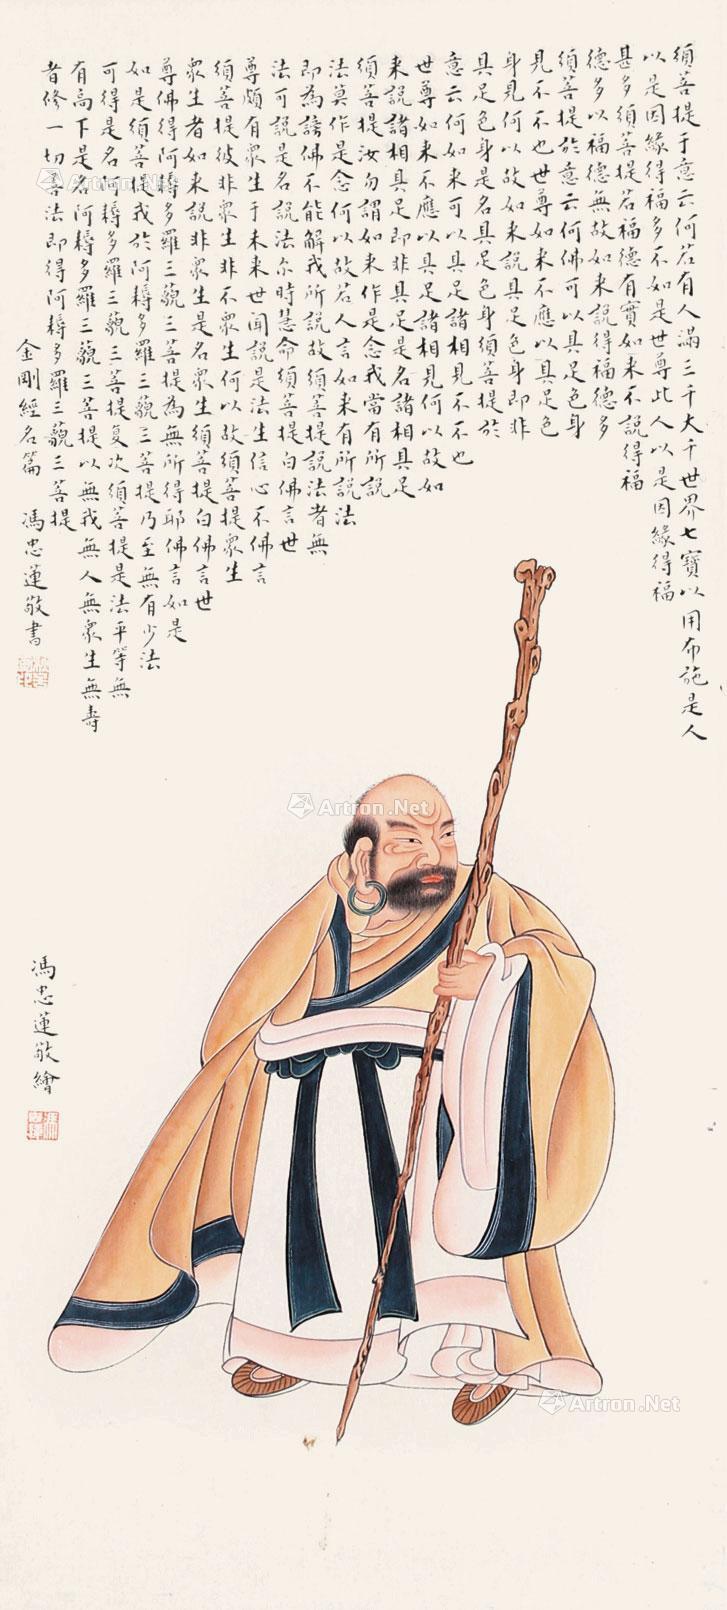 須菩提于意云何若有人滿三千大千世界七寶以用布施是人
以是因緣得福多不如是世尊此人以是因緣得福
甚多須菩提若福德有實如來不說得福
德多以福德無故如來說得福德多
須菩提於意云何佛可以具足色身
見不不也世尊如來不應以具足色
身見何以故如來說具足色身即非
具足色身是名具足色身須菩提於
意云何如來可以具足諸相見不不也
世尊如來不應以具足諸相見何以故如
來說諸相具足即非具足是名諸相具足
須菩提汝勿謂如來作是念我當有所說
法莫作是念何以故若人言如來有所說法
即為謗佛不能解我所說故須菩提說法者無
法可說是名說法尒時慧命須菩提白佛言世
尊頗有眾生于未來世聞說是法生信心不佛言
須菩提彼非眾生非不眾生何以故須菩提眾生
眾生者如來說非眾生是名眾生須菩提白佛言世
尊佛得阿耨多羅三藐三菩提為無所得耶佛言如是
如是須菩提我於阿耨多羅三藐三菩提乃至無有少法
可得是名阿耨多羅三藐三菩提復次須菩提是法平等無
有高下是名阿耨多羅三藐三菩提以無我無人無眾生無壽
者修一切善法即得阿耨多羅三藐三菩提
金剛經名篇 馮忠蓮敬書
馮忠蓮敬繪
Artron.Net
Artron.Net
Artron.Net
Artron.Net